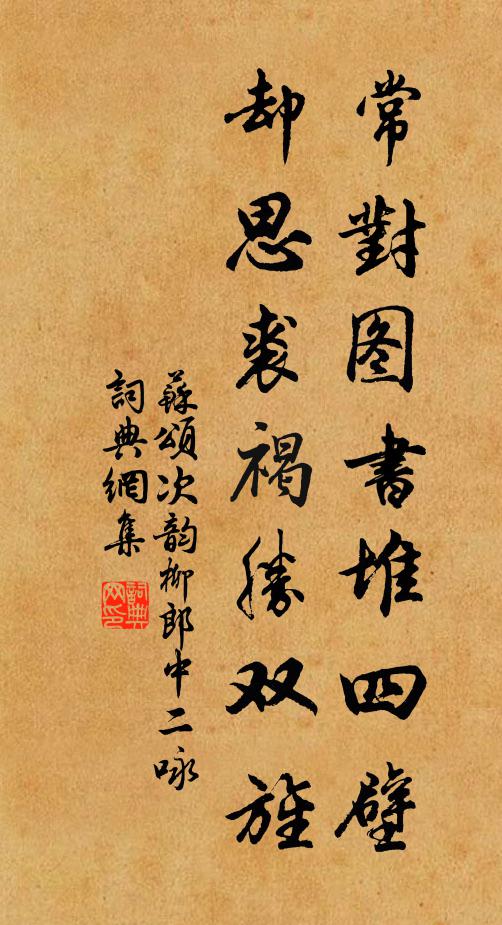 常對图書堆四壁
却思裘褐勝双旌
蘇頌次韵柳郎中二咏
詞典網集
詞典網印